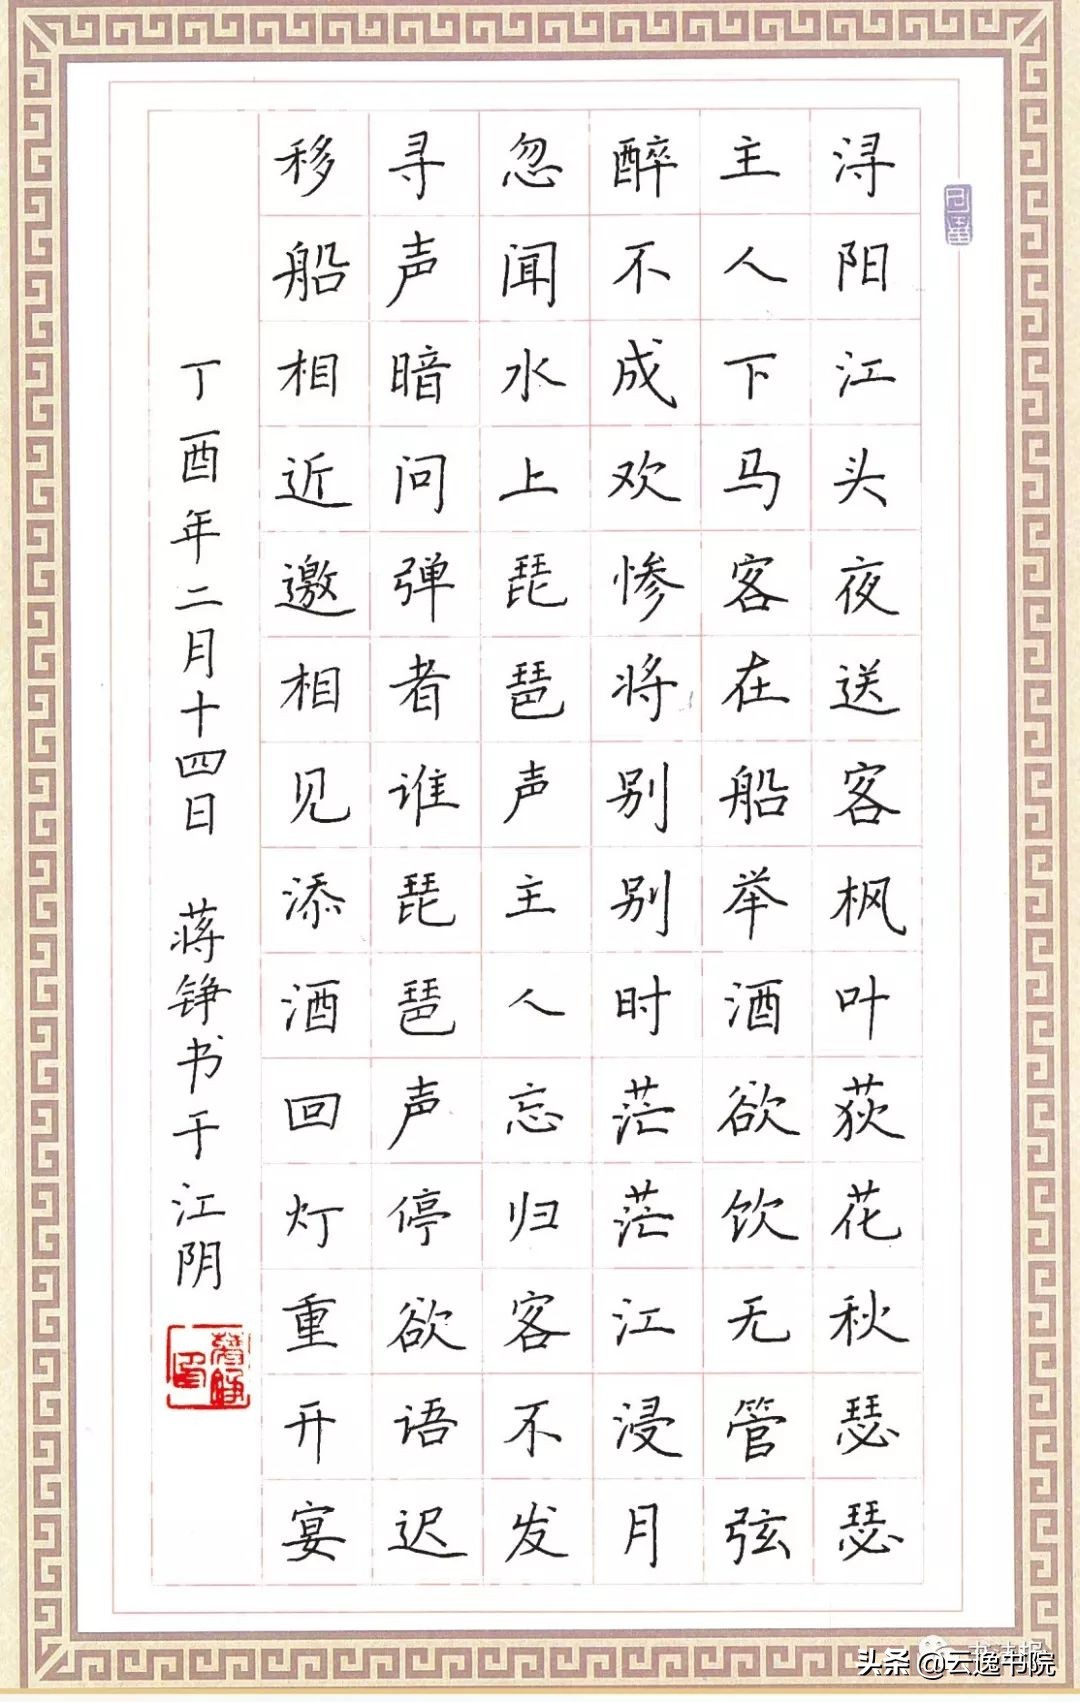 浔阳江头夜送客枫叶荻花秋瑟瑟
主人下马客在船举酒欲饮无管弦
醉不成欢惨将别别时茫茫江浸月
忽闻水上琵琶声主人忘归客不发
寻声暗问弹者谁琵琶声停欲语迟
移船相近邀相见添酒回灯重开宴
丁酉年二月十四日 蒋铮书于江阴
头条 @云逸书院